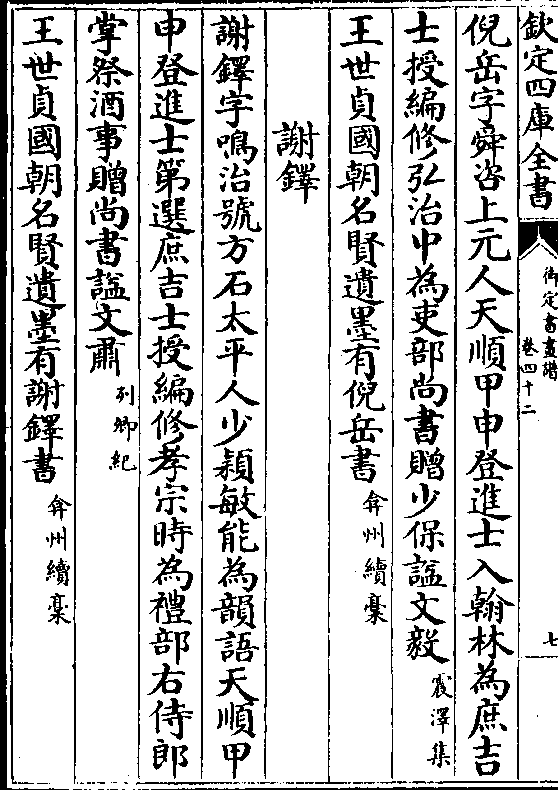 欽定四庫全書
御定書畫譜
卷四十二
七
倪岳字舜咨上元人天順甲申登進士入翰林為庶吉
士授編修弘治中為吏部尚書贈少保諡文毅震澤集
王世貞國朝名賢遺墨有倪岳書弇州續稾
謝鐸
謝鐸字鳴治號方石太平人少穎敏能為韻語天順甲
申登進士第選庶吉士授編修孝宗時為禮部右侍郎
掌祭酒事贈尚書諡文肅列卿紀
王世貞國朝名賢遺墨有謝鐸書弇州續稾